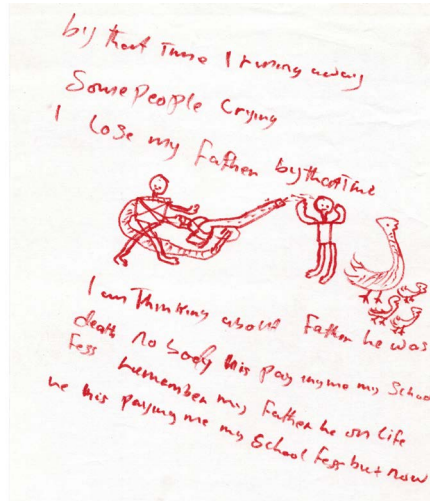 by that Time I runing away
Some People Crying
I Lose my Father by that Time
I am Thinking about Father he was
death no body his pay ing me my School
Fess remember my Father he on life
he his paying me my School Fess but now